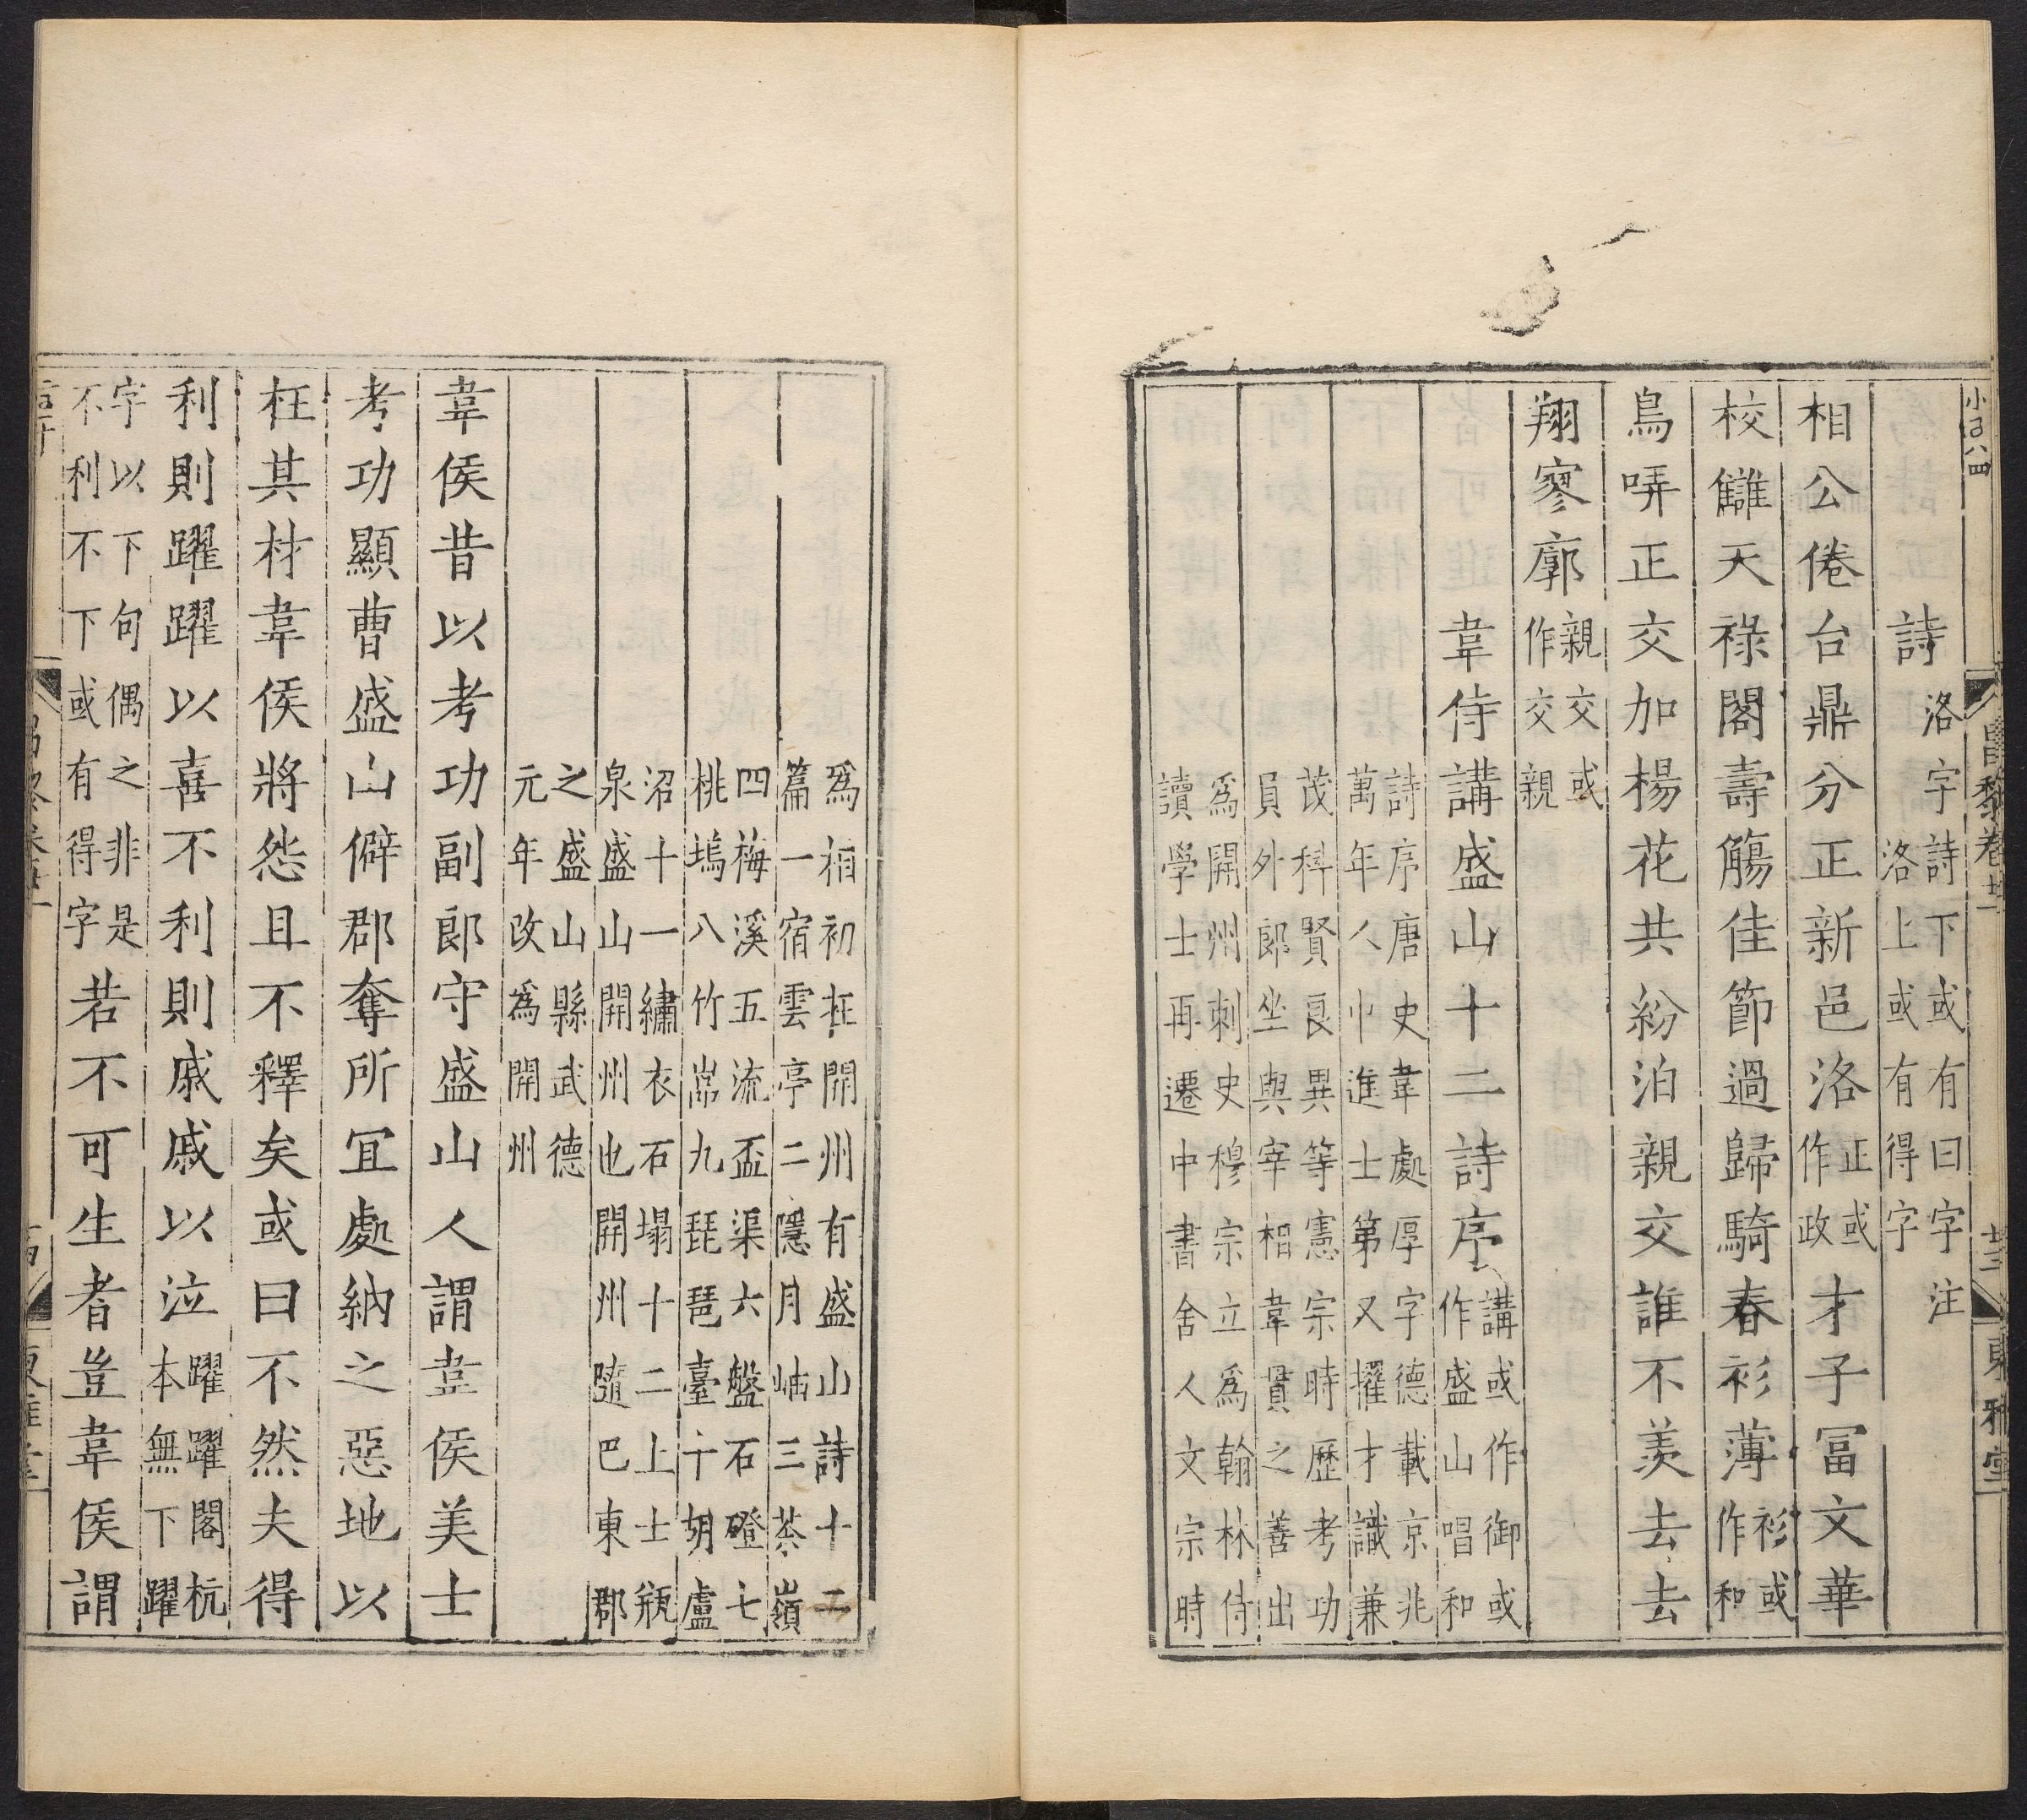 昌黎卷廿一 廿三 東雅堂
詩洛字詩下或有曰字注
洛上或有得字
相公倦台鼎分正新邑洛正或作政才子冨文華
校讎天祿閣壽觴佳節過歸騎春衫薄衫或作和
鳥哢正交加楊花共紛泊親交誰不羨去去
翔寥廓親交或作交親
韋侍講盛山十二詩序講或作御或作盛山唱和
詩序唐史韋處厚字德載京兆
萬年人中進士第又擢才識兼
茂科賢良異等憲宗時歷考功
員外郎坐與宰相韋貫之善出
爲開州刺史穆宗立爲翰林侍
讀學士再遷中書舍人文宗時
爲相初在開州有盛山詩十二
篇一宿雲亭二隱月岫三茶嶺
四梅溪五流盃渠六盤石磴七
桃塢八竹嵓九琵琶臺十胡盧
沼十一繡衣石塌十二上士瓶
泉盛山開州也開州隨巴東郡
之盛山縣武德
元年改爲開州
韋侯昔以考功副郎守盛山人謂韋侯美士
考功顯曹盛山僻郡奪所宜處納之惡地以
枉其材韋侯將怨且不釋矣或曰不然夫得
利則躍躍以喜不利則戚戚以泣躍躍閣杭本無下躍
字以下句偶之非是不利不下或有得字若不可生者豈韋侯謂